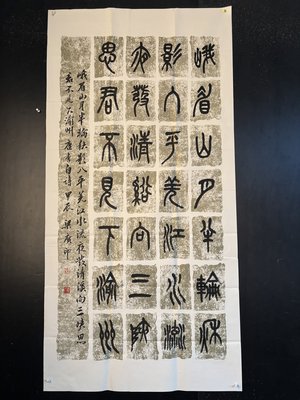 峨眉山月半輪秋
影入平羌江水流
夜發清谿向三峽
思君不見下渝州
峨眉山月半輪秋影入平羌江水流夜發清溪向三峽思
君不見下渝州 唐李白詩 甲辰